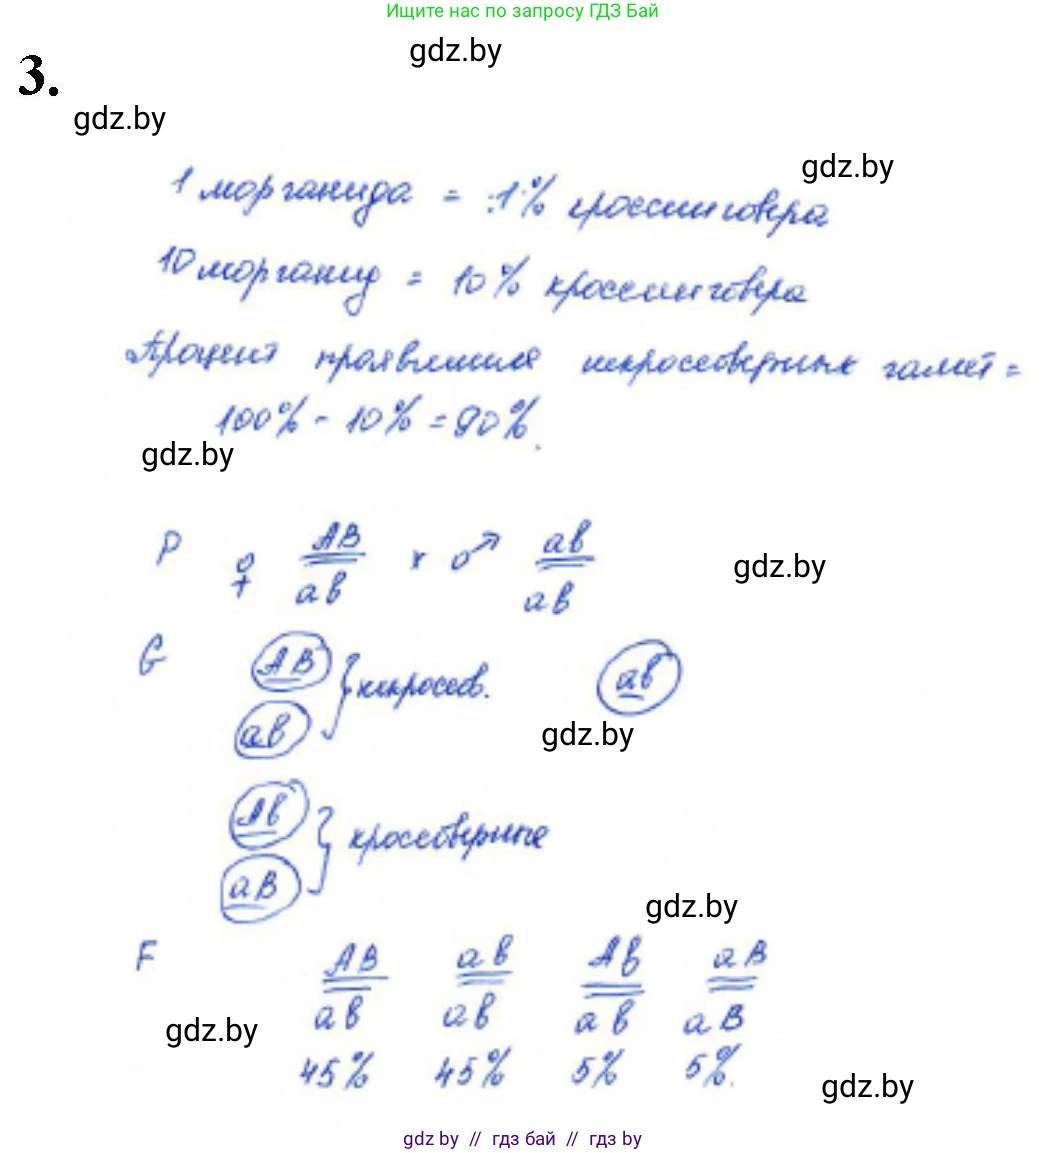 Ищите нас по запросу ГДЗ Бай
gdz.by
3.
gdz.by
gdz.by
1 морганида = 1% кроссинговера
10 морганид = 10% кроссинговера
Процент проявления некроссоверных гамет =
100% - 10% = 90%.
gdz.by
P ♀ AB x ♂ ab
ab ab
gdz.by
G AB } некроссов. ab
ab
gdz.by
Ab } кроссоверные
aB
gdz.by
F AB ab Ab aB
ab ab ab aB
gdz.by
45% 45% 5% 5%.
gdz.by
gdz by // гдз бай // гдз by